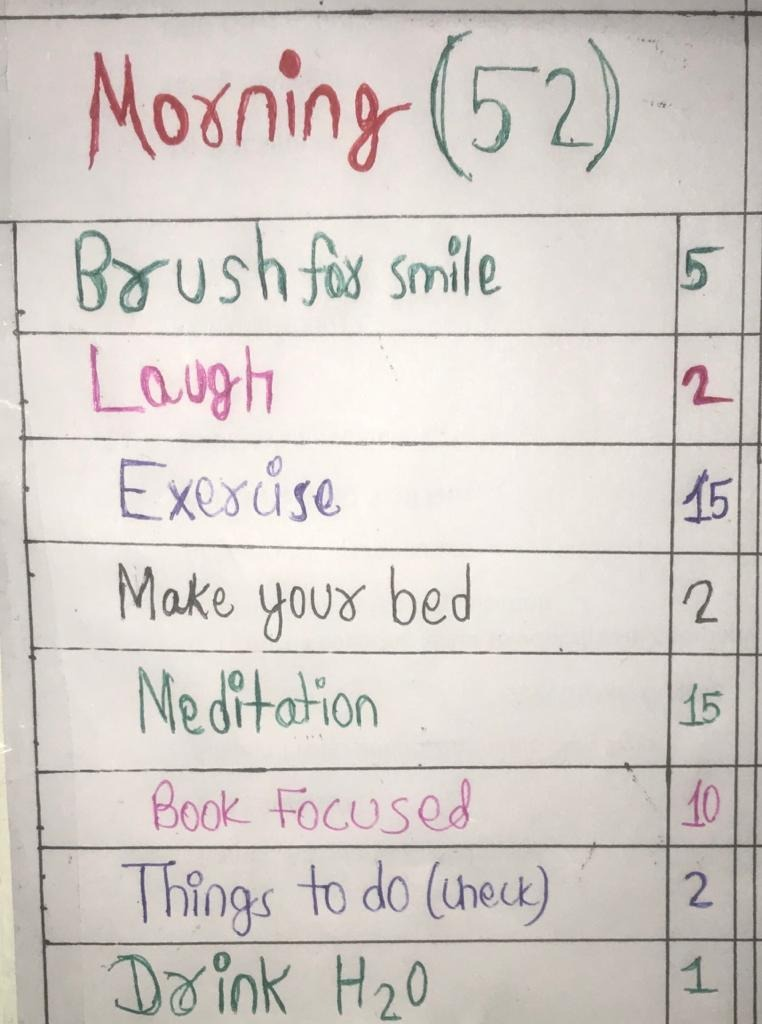 Morning (52)
Brush for smile 5
Laugh 2
Exercise 15
Make your bed 2
Meditation 15
Book Focused 10
Things to do (check) 2
Drink H2O 1